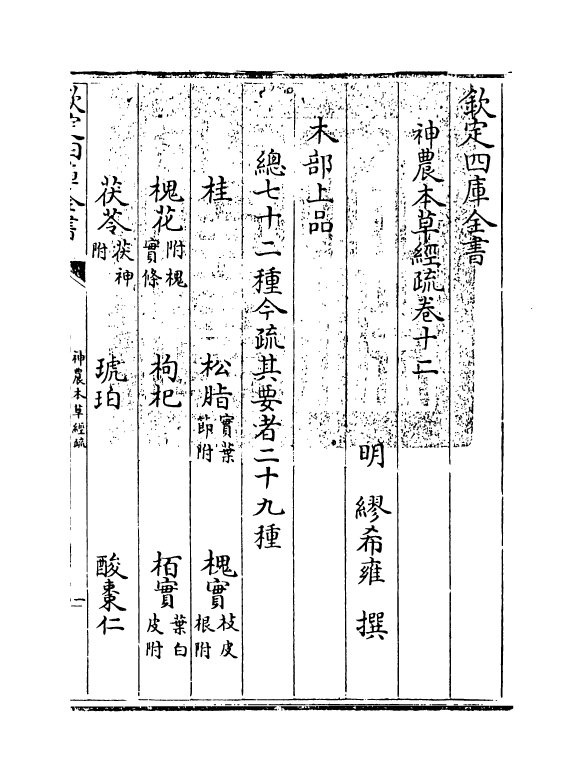 欽定四庫全書
神農本草經疏卷十二
明 繆希雍 撰
木部上品
總七十二種今疏其要者二十九種
桂 松脂實葉節附 槐實枝皮根附
槐花附槐實條 枸杞 栢實葉白皮附
茯苓茯神附 琥珀 酸棗仁
欽定四庫全書 神農本草經疏 一